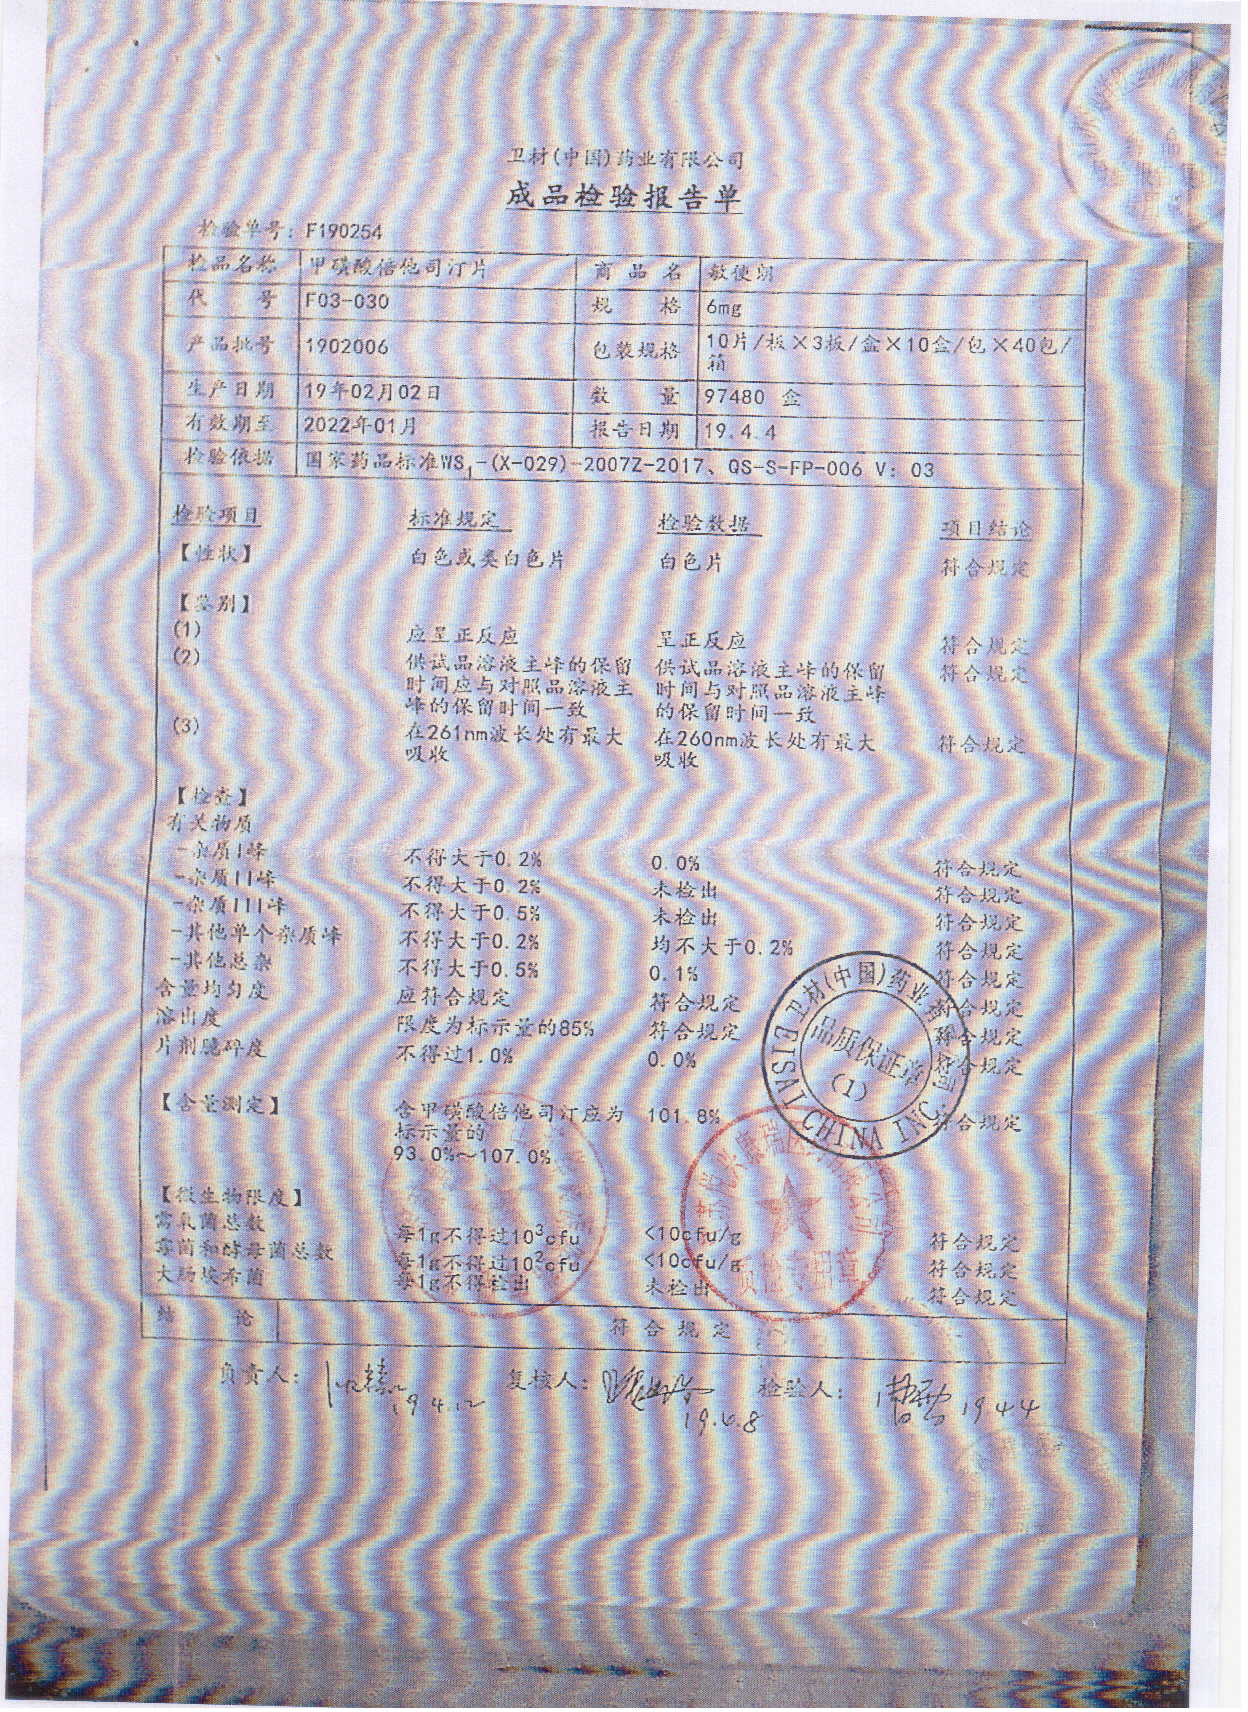 卫材(中国)药业有限公司
成品检验报告单
检验单号: F190254
检品名称 甲磺酸倍他司汀片 商品名 敏使朗
代号 F03-030 规格 6mg
产品批号 1902006 包装规格 10片/板×3板/盒×10盒/包×40包/
箱
生产日期 19年02月02日 数量 97480 盒
有效期至 2022年01月 报告日期 19.4.4
检验依据 国家药品标准WS1-(X-029)-2007Z-2017、QS-S-FP-006 V: 03
检验项目 标准规定 检验数据 项目结论
【性状】 白色或类白色片 白色片 符合规定
【鉴别】
(1) 应呈正反应 呈正反应 符合规定
(2) 供试品溶液主峰的保留 供试品溶液主峰的保留 符合规定
时间应与对照品溶液主 时间与对照品溶液主峰
峰的保留时间一致 的保留时间一致
(3) 在261nm波长处有最大 在260nm波长处有最大 符合规定
吸收 吸收
【检查】
有关物质
-杂质I峰 不得大于0.2% 0.0% 符合规定
-杂质II峰 不得大于0.2% 未检出 符合规定
-杂质III峰 不得大于0.5% 未检出 符合规定
-其他单个杂质峰 不得大于0.2% 均不大于0.2% 符合规定
-其他总杂 不得大于0.5% 0.1% 符合规定
含量均匀度 应符合规定 符合规定 符合规定
溶出度 限度为标示量的85% 符合规定 符合规定
片剂脆碎度 不得过1.0% 0.0% 符合规定
【含量测定】 含甲磺酸倍他司汀应为 101.8% 符合规定
标示量的
93.0%~107.0%
【微生物限度】
需氧菌总数 每1g不得过10³cfu <10cfu/g 符合规定
霉菌和酵母菌总数 每1g不得过10²cfu <10cfu/g 符合规定
大肠埃希菌 每1g不得检出 未检出 符合规定
结论 符合规定
负责人: 19.4.12 复核人: 19.4.8 检验人: 19.4.4
卫材(中国)药业有限公司
品质保证章
(1)
EISAI CHINA INC.
质检专用章